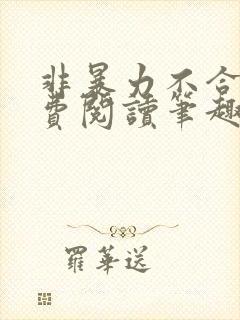 非暴力不合
費閱讀筆趣
羅華送